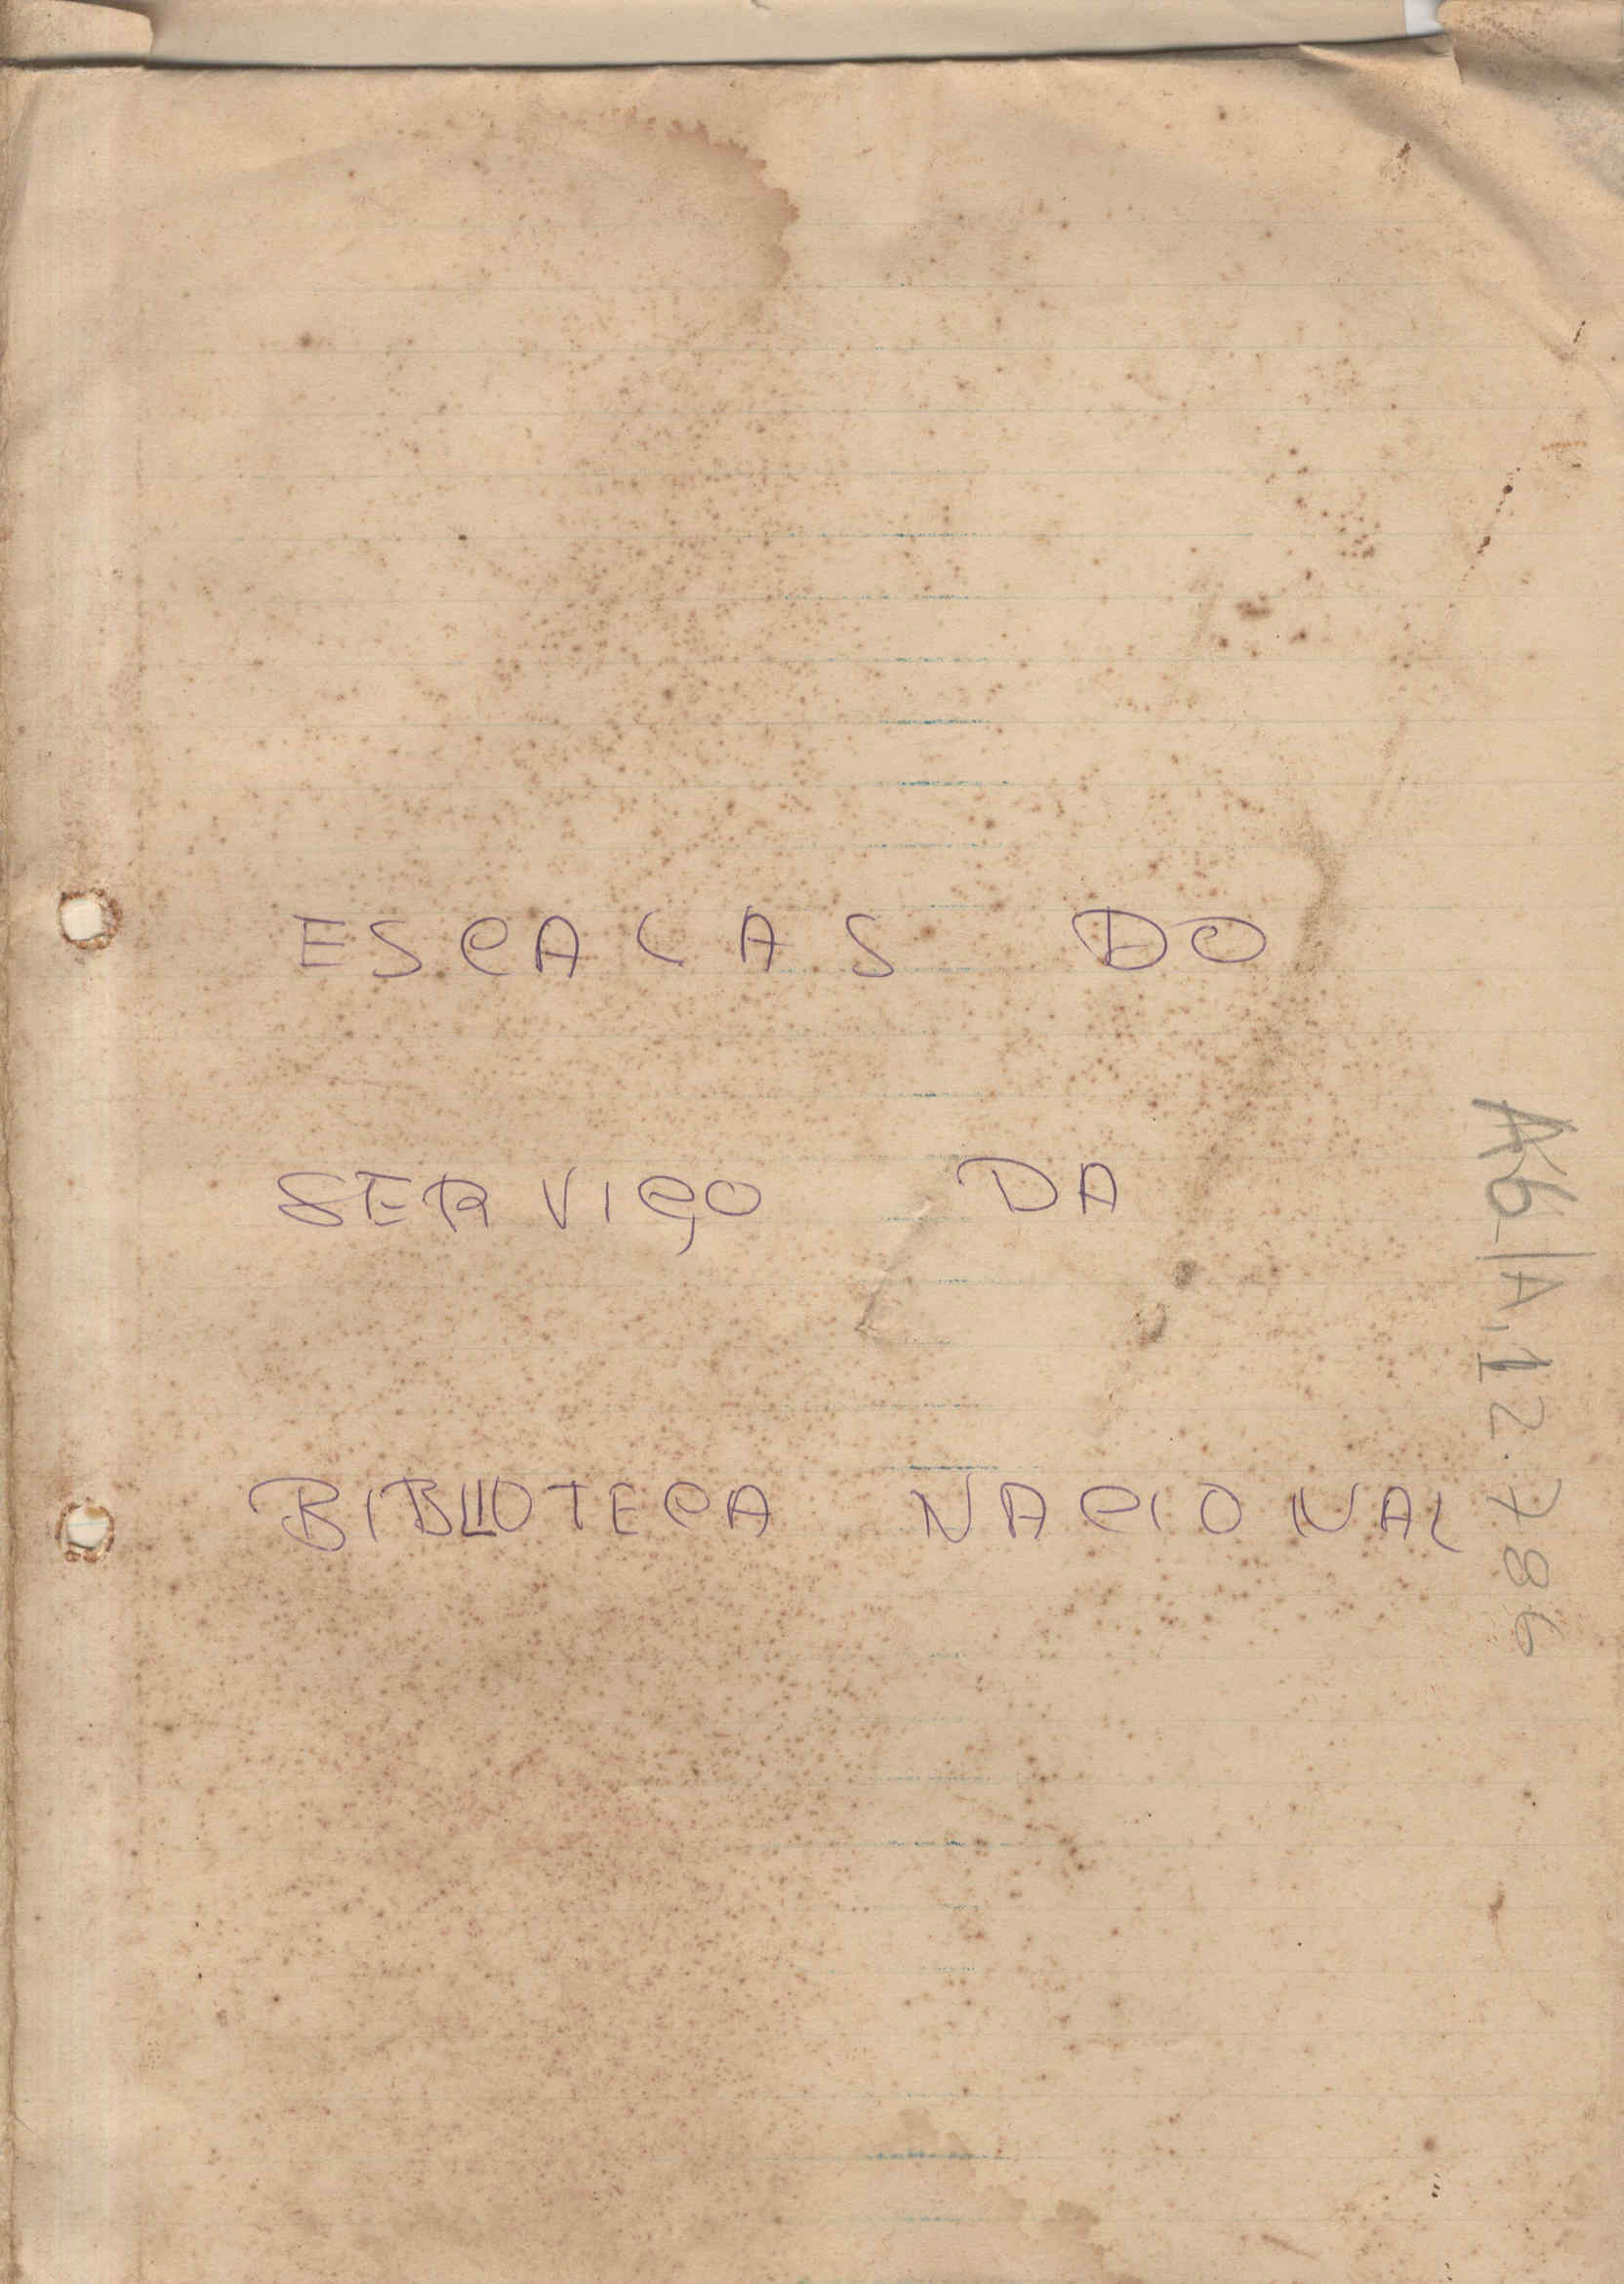 ESCALAS DO
SERVIÇO DA
BIBLIOTECA NACIONAL
A6/A.12.786